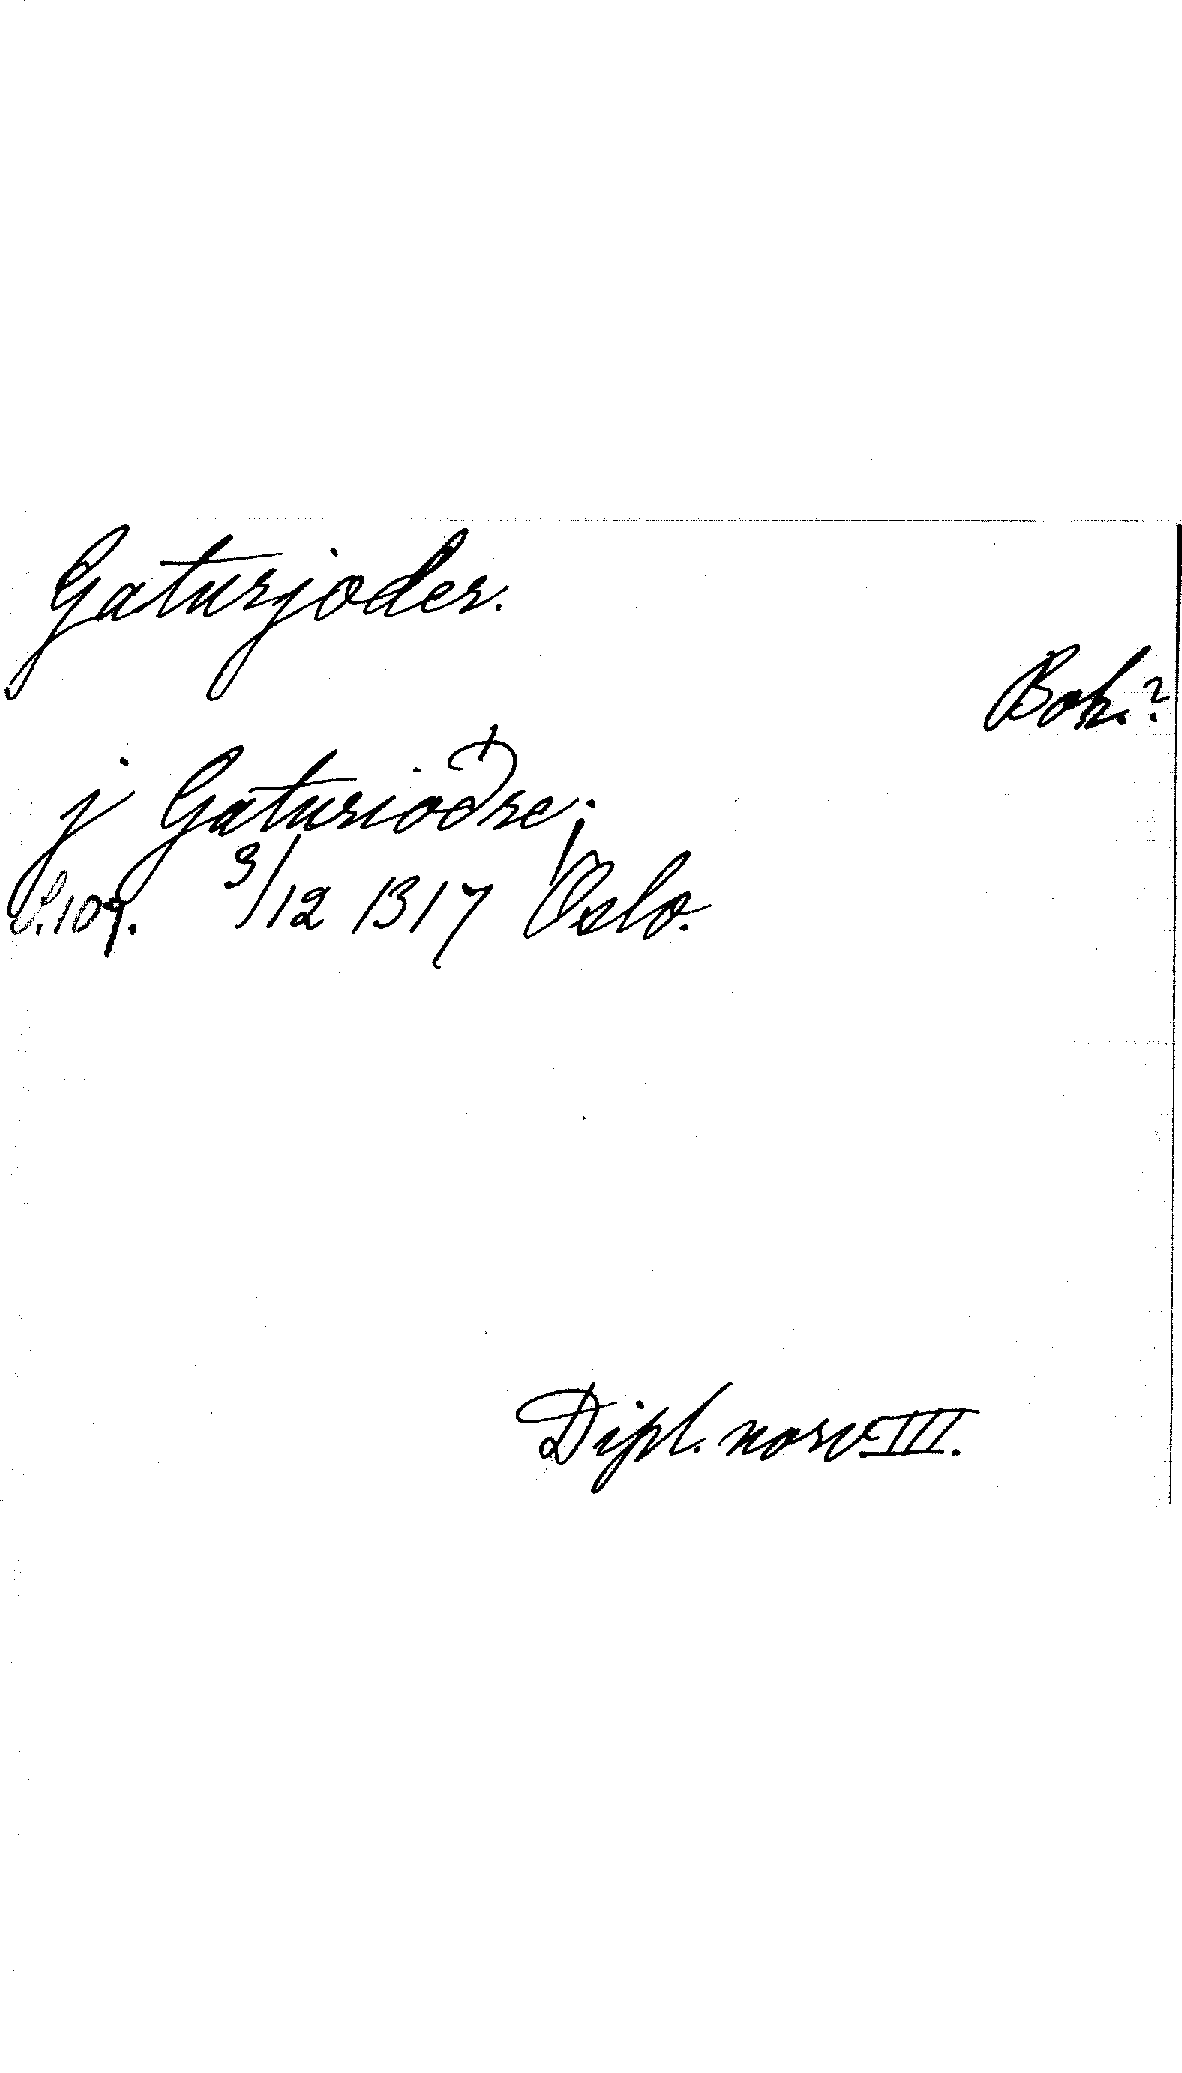 Gaturjoder.
Boh.?
j Gaturioðre;
S. 109. 9/12 1317 Oslo.
Dipl. norv. III.